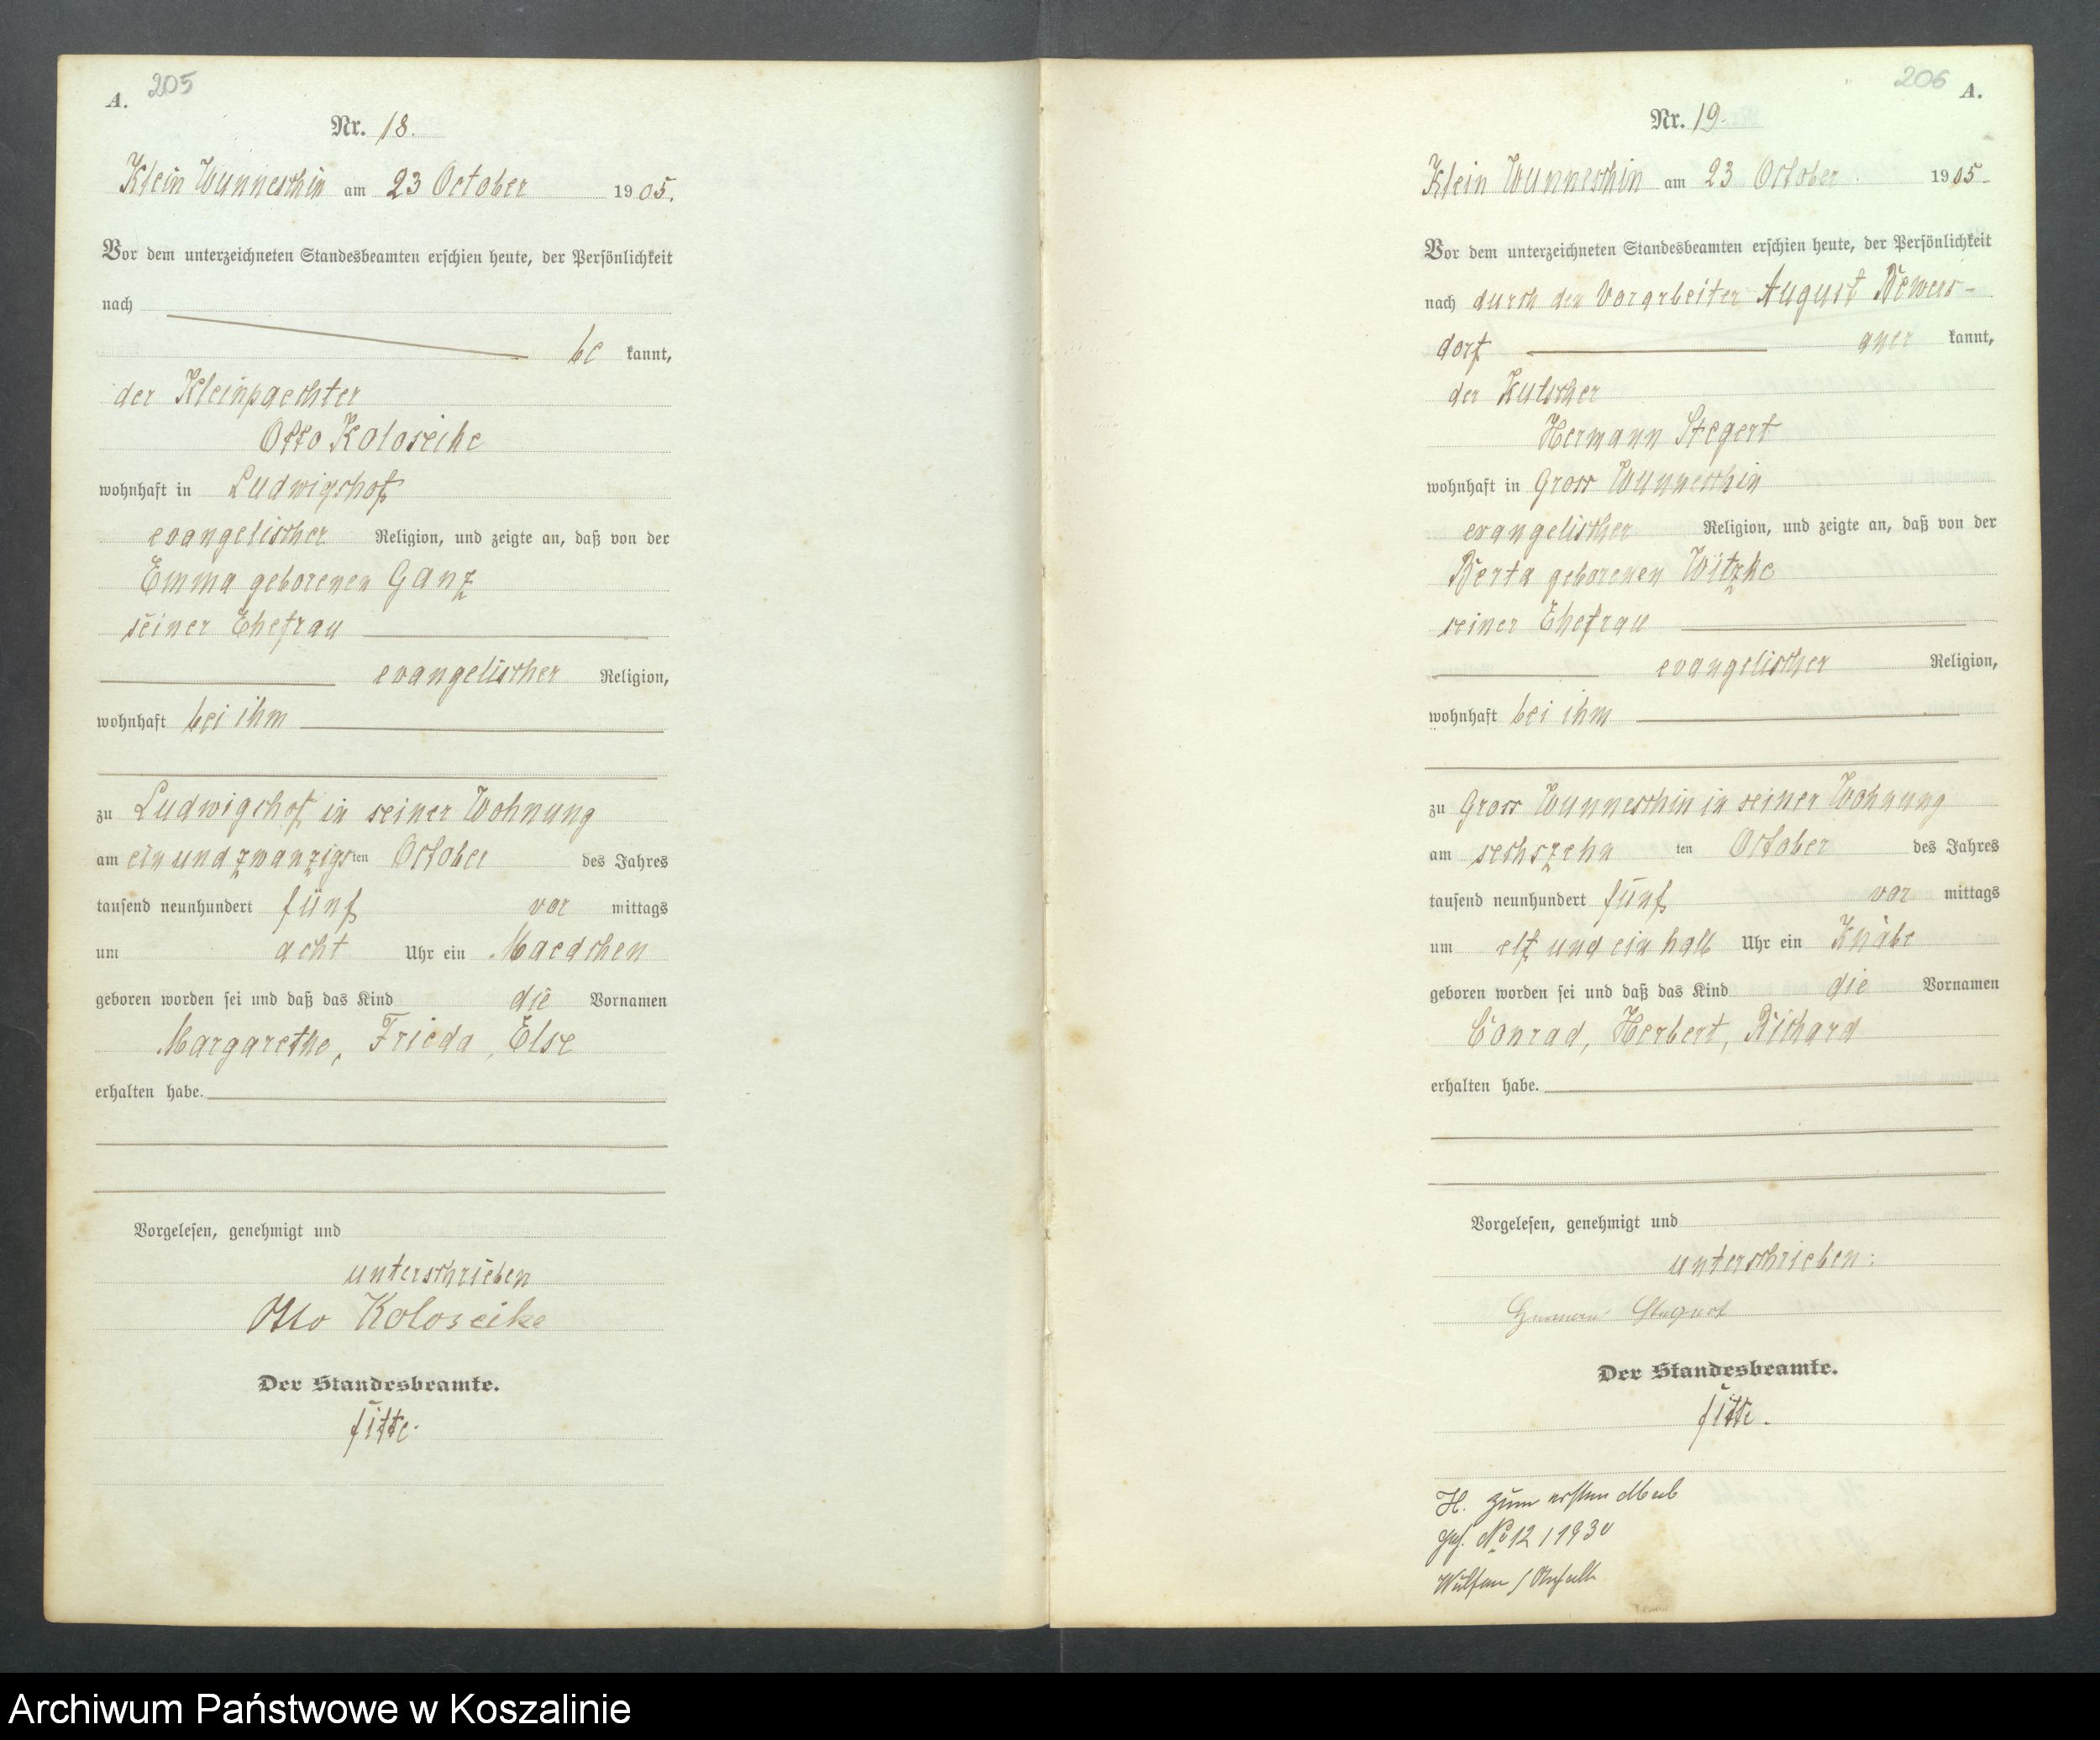 A. 205
Nr. 18.
Klein Wunneschin am 23 October 1905.
Vor dem unterzeichneten Standesbeamten erschien heute, der Persönlichkeit
nach
be kannt,
der Kleinpaechter
Otto Koloseike
wohnhaft in Ludwigshof
evangelischer Religion, und zeigte an, daß von der
Emma geborenen Ganz
seiner Ehefrau
evangelischer Religion,
wohnhaft bei ihm
zu Ludwigshof in seiner Wohnung
am ein und zwanzigsten October des Jahres
tausend neunhundert fünf vor mittags
um acht Uhr ein Maedchen
geboren worden sei und daß das Kind die Vornamen
Margarethe, Frieda, Else
erhalten habe.
Vorgelesen, genehmigt und
unterschrieben
Otto Koloseike
Der Standesbeamte.
206 A.
Nr. 19.
Klein Wunneschin am 23 October 1905
Vor dem unterzeichneten Standesbeamten erschien heute, der Persönlichkeit
nach durch den Vorarbeiter August Bewers-
dorf aner kannt,
der Kutscher
Hermann Stegert
wohnhaft in Gross Wunneschin
evangelischer Religion, und zeigte an, daß von der
Berta geborenen Witzke
seiner Ehefrau
evangelischer Religion,
wohnhaft bei ihm
zu Gross Wunneschin in seiner Wohnung
am sechszehn ten October des Jahres
tausend neunhundert fünf vor mittags
um elf und ein halb Uhr ein Knabe
geboren worden sei und daß das Kind die Vornamen
Conrad, Herbert, Richard
erhalten habe.
Vorgelesen, genehmigt und
unterschrieben:
Hermann Stegert
Der Standesbeamte.
H. zum ersten Mal
No 12 / 1930
Wulfen / Anhalt
Archiwum Państwowe w Koszalinie